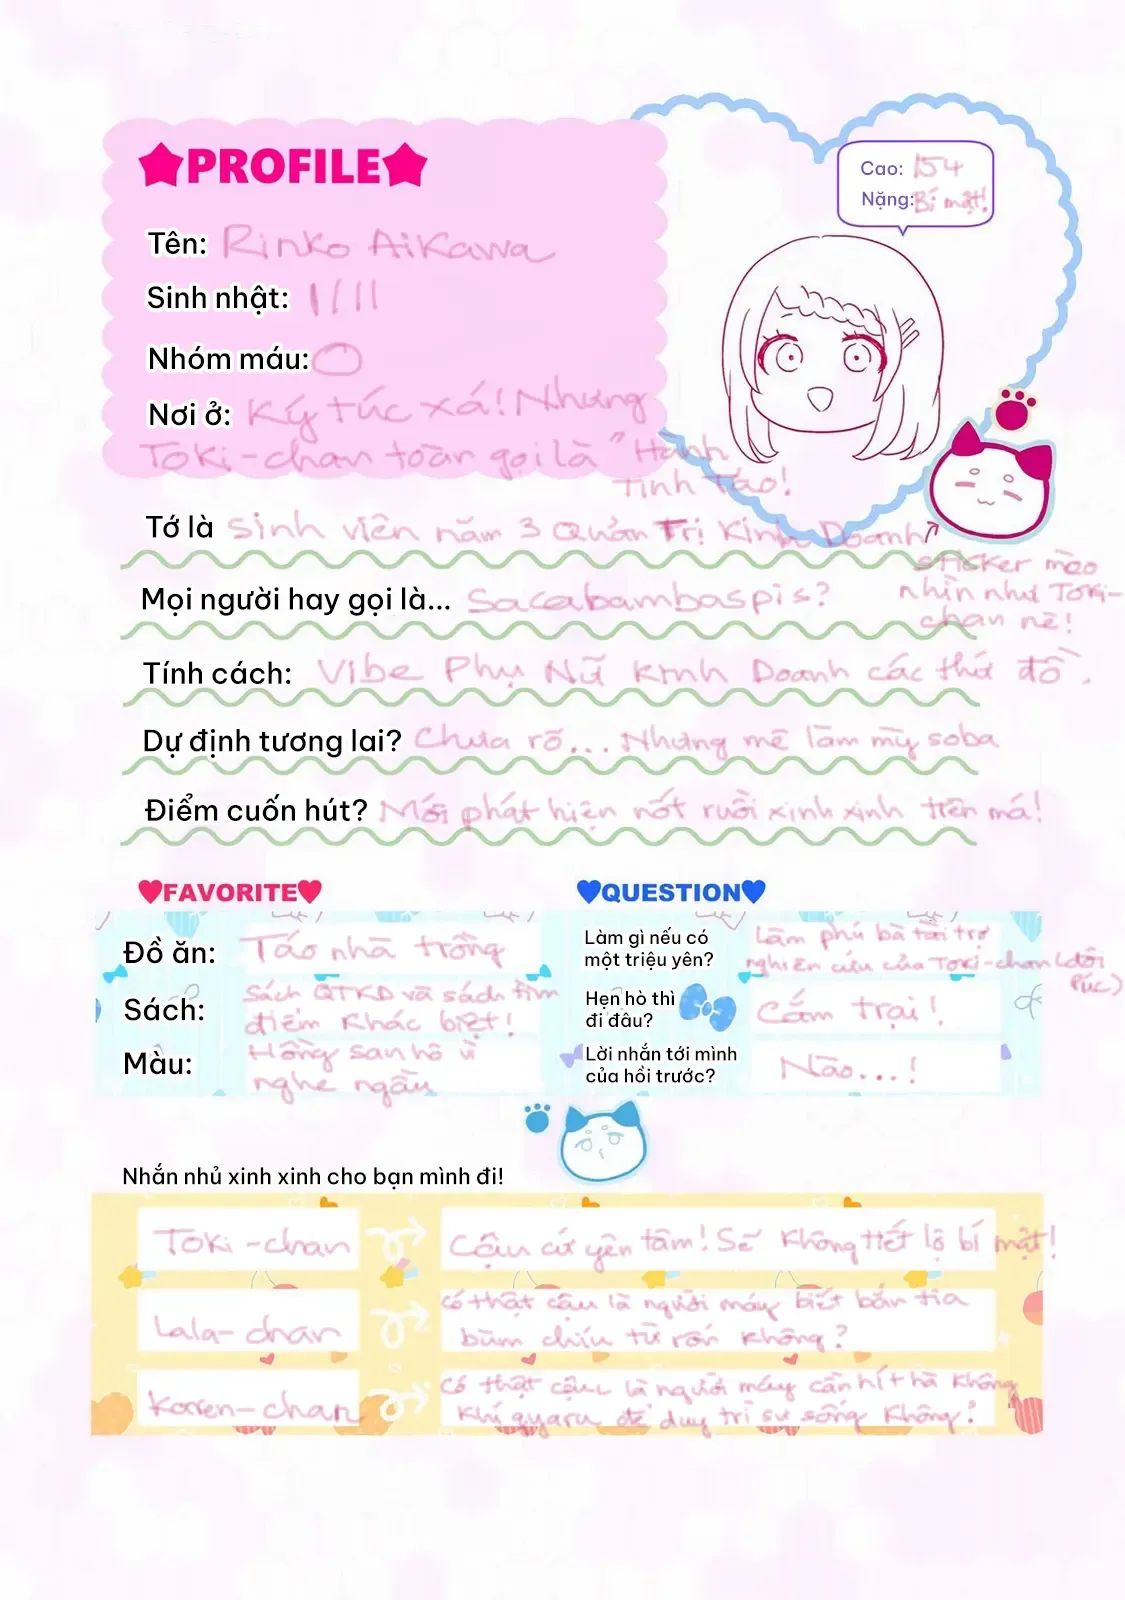 ★PROFILE★
Cao: 154
Nặng: Bí mật!
Tên: Rinko Aikawa
Sinh nhật: 1/11
Nhóm máu: O
Nơi ở: Ký túc xá! Nhưng
Toki-chan toàn gọi là "Hành
Tinh Táo!
Tớ là Sinh viên năm 3 Quản Trị Kinh Doanh
sticker mèo
nhìn như Toki-
chan nè!
Mọi người hay gọi là... Sacabambaspis?
Tính cách: Vibe Phụ Nữ Kinh Doanh các thứ đồ.
Dự định tương lai? Chưa rõ... Nhưng mê làm mỳ soba
Điểm cuốn hút? Mới phát hiện nốt ruồi xinh xinh trên má!
♥FAVORITE♥
Đồ ăn: Táo nhà trồng
Sách: Sách QTKD và sách tìm
điểm khác biệt!
Màu: Hồng san hô vì
nghe ngầu
♥QUESTION♥
Làm gì nếu có
một triệu yên?
Làm phú bà tài trợ
nghiên cứu của Toki-chan (dôi
Púc)
Hẹn hò thì
đi đâu?
Cắm trại!
Lời nhắn tới mình
của hồi trước?
Não...!
Nhắn nhủ xinh xinh cho bạn mình đi!
Toki-chan
Cậu cứ yên tâm! Sẽ không tiết lộ bí mật!
Lala-chan
Có thật cậu là người máy biết bắn tia
bùm chíu từ rốn không?
Karen-chan
Có thật cậu là người máy cần hít hà không
khí gyaru để duy trì sự sống không?